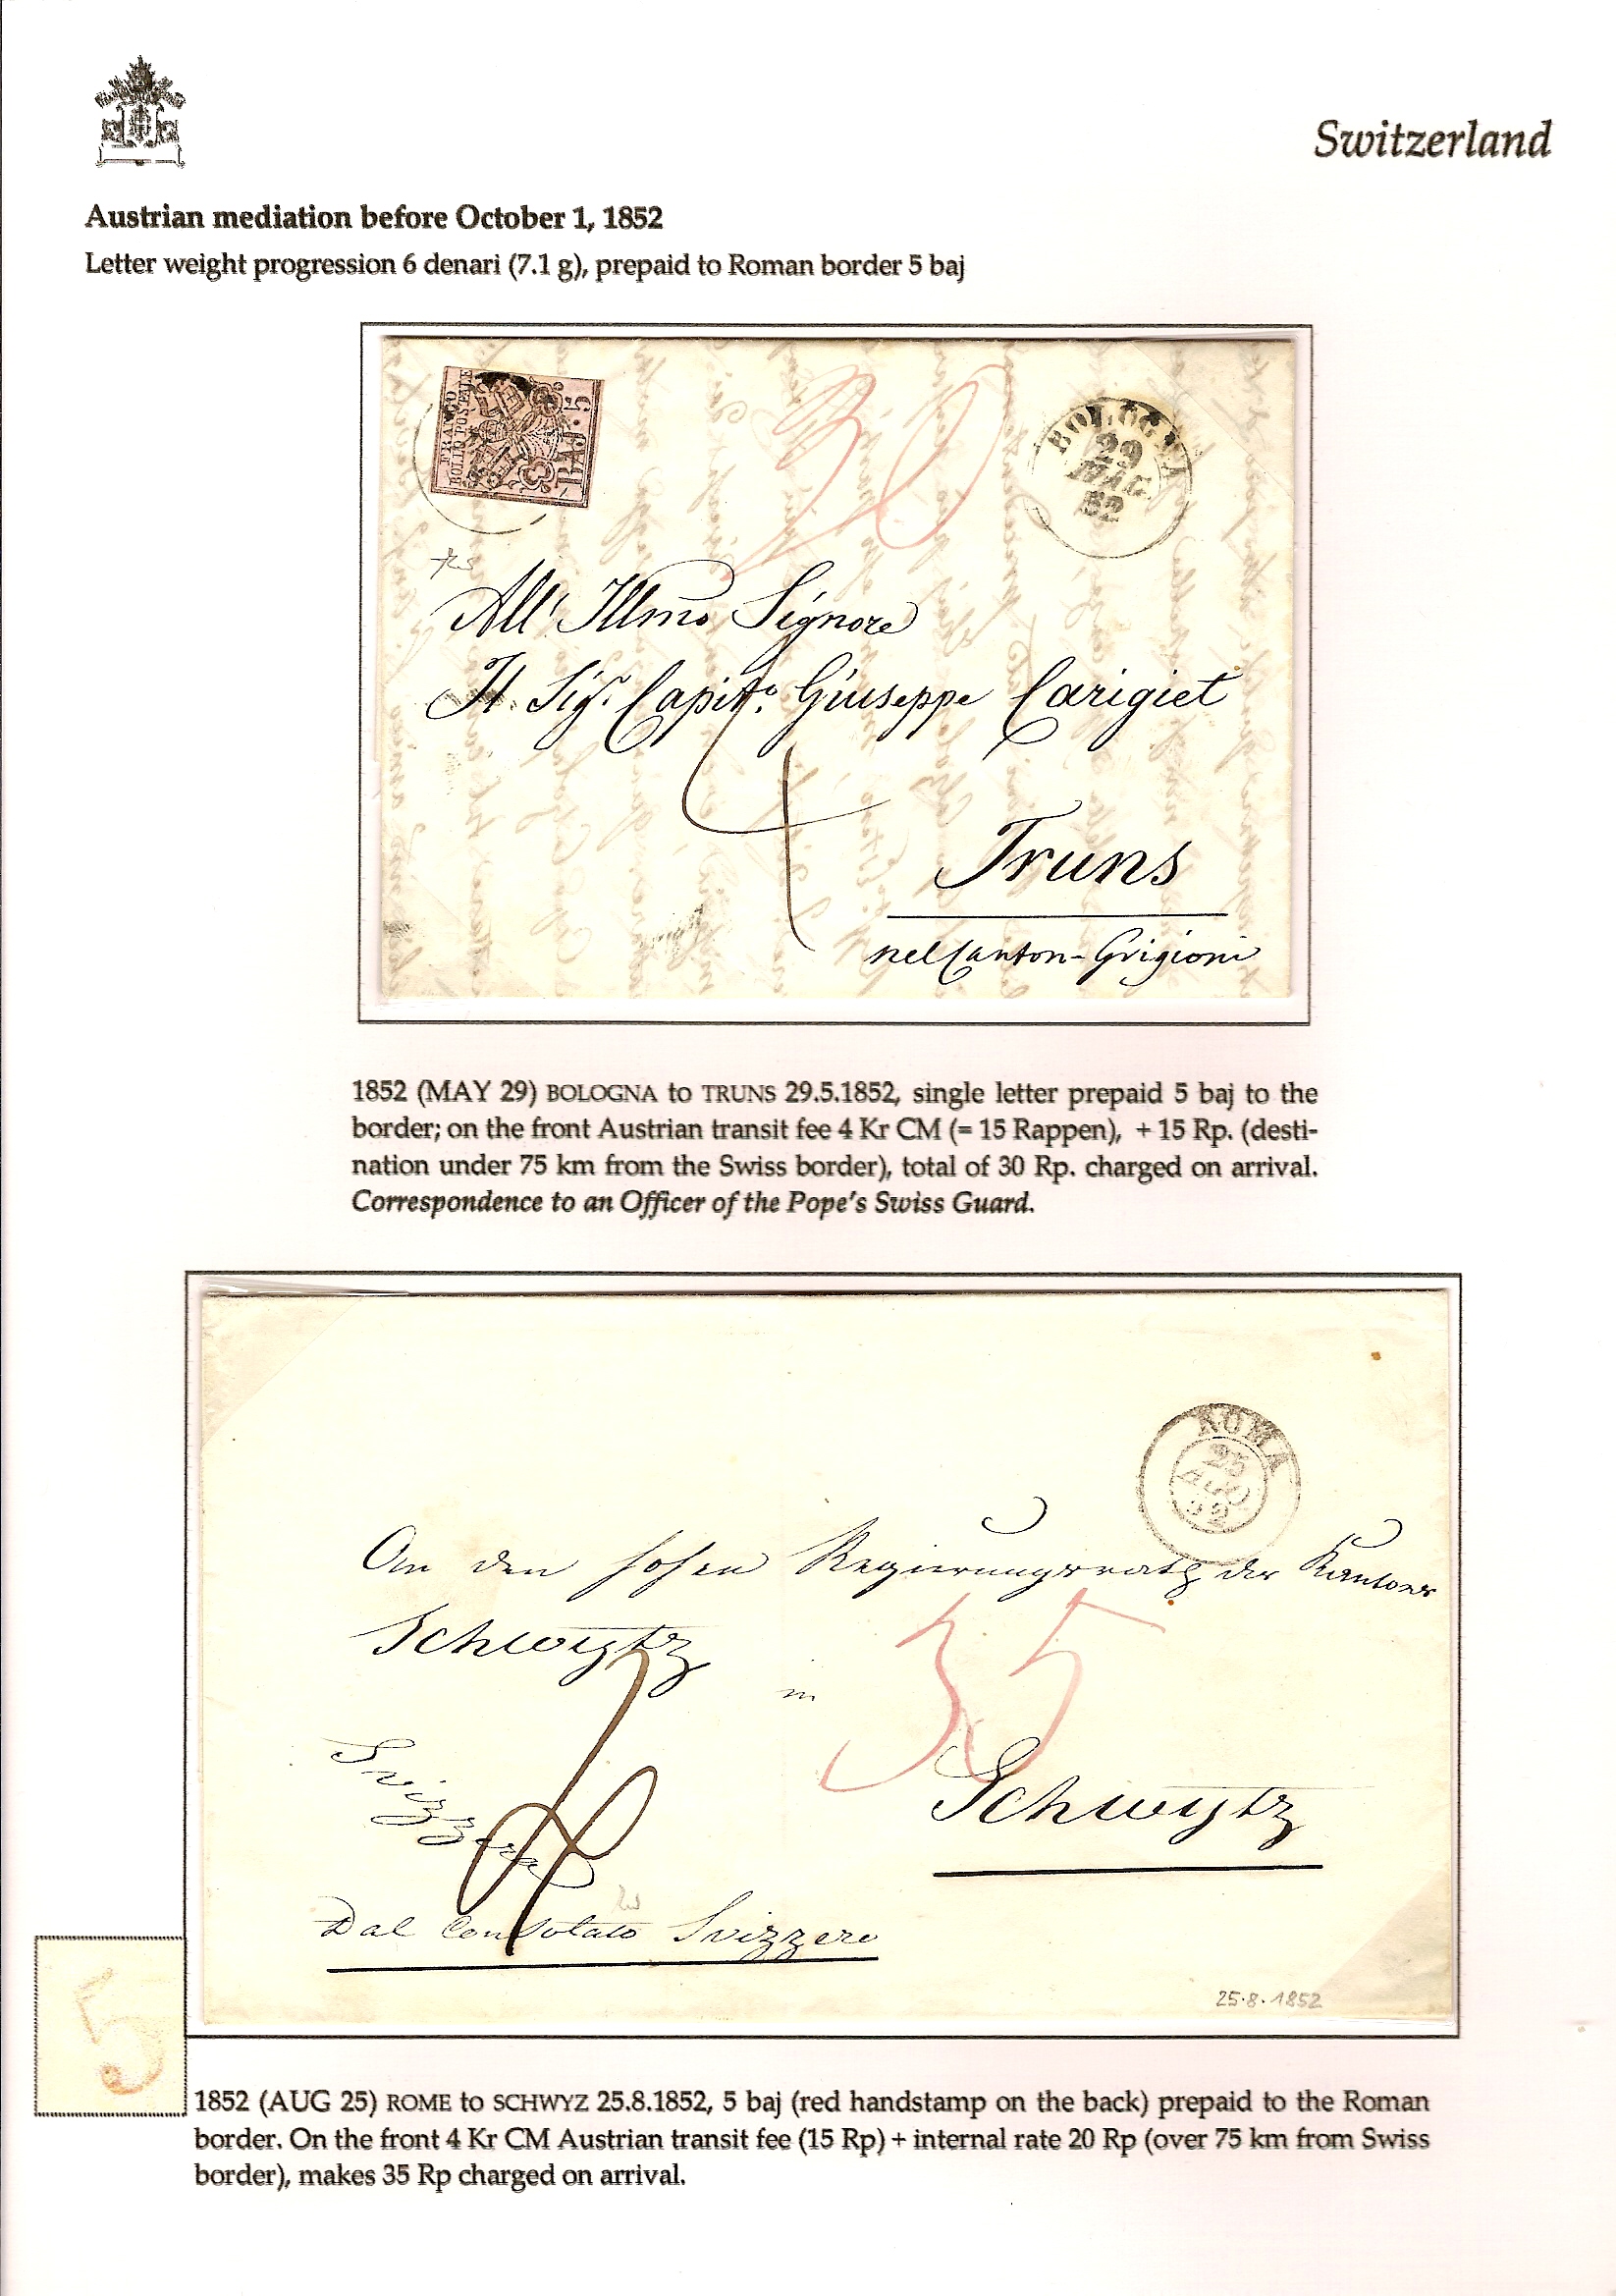 Switzerland
Austrian mediation before October 1, 1852
Letter weight progression 6 denari (7.1 g), prepaid to Roman border 5 baj
FRANCO
BOLLO POSTALE
BAJ. 5
30
BOLOGNA
29
MAG
52
All' Illmo Signore
Il Sigr. Capito. Giuseppe Carigiet
4
Truns
nel Canton-Grigioni
1852 (MAY 29) BOLOGNA to TRUNS 29.5.1852, single letter prepaid 5 baj to the
border; on the front Austrian transit fee 4 Kr CM (= 15 Rappen), + 15 Rp. (desti-
nation under 75 km from the Swiss border), total of 30 Rp. charged on arrival.
Correspondence to an Officer of the Pope's Swiss Guard.
ROMA
25
AGO
52
An den hohen Regierungsrath des Kantons
Schwytz
in
35
Schwytz
Svizzera
4
Dal Consolato Svizzero
25.8.1852
5
1852 (AUG 25) ROME to SCHWYZ 25.8.1852, 5 baj (red handstamp on the back) prepaid to the Roman
border. On the front 4 Kr CM Austrian transit fee (15 Rp) + internal rate 20 Rp (over 75 km from Swiss
border), makes 35 Rp charged on arrival.